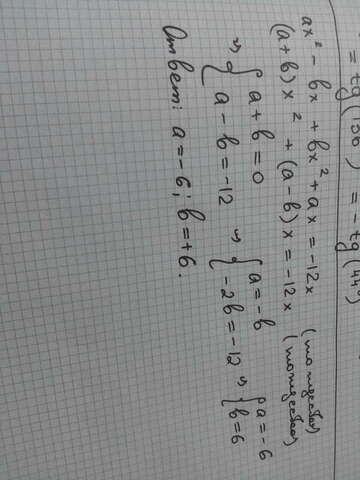 = tg(136°) = - tg(44°)
ax² - bx + bx² + ax = -12x (тождество)
(a+b)x² + (a-b)x = -12x (тождество)
⇒ { a+b=0 a-b=-12 ⇒ { a=-b -2b=-12 ⇒ { a=-6 b=6
Ответ: a=-6; b=+6.